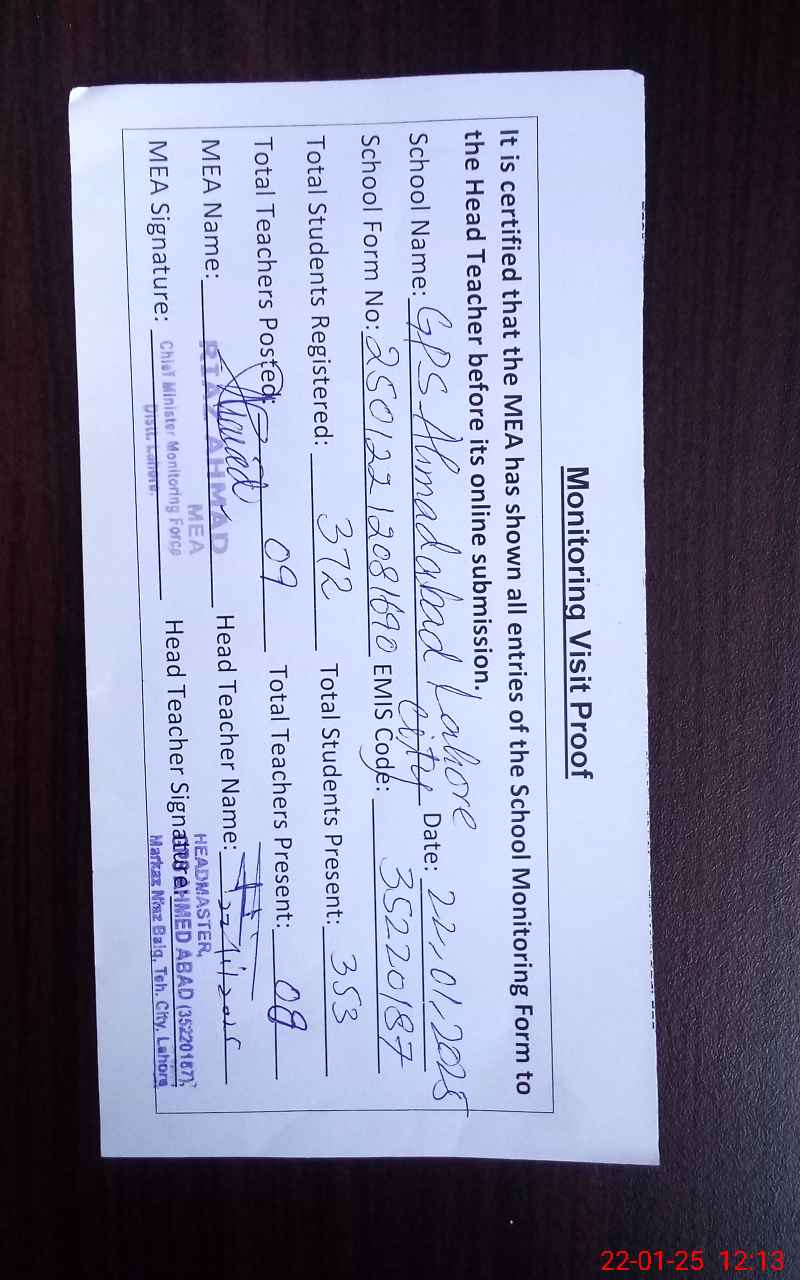 Monitoring Visit Proof
It is certified that the MEA has shown all entries of the School Monitoring Form to
the Head Teacher before its online submission.
School Name: GPS Ahmadabad Lahore City Date: 22/01/2025
School Form No: 25012212081690 EMIS Code: 35220187
Total Students Registered: 372 Total Students Present: 353
Total Teachers Posted: 09 Total Teachers Present: 09
MEA Name: RIAZ AHMAD Head Teacher Name:
MEA
MEA Signature: Chief Minister Monitoring Force Head Teacher Signature:
Distt. Lahore.
22/1/2025
HEADMASTER,
GPS AHMED ABAD (35220187),
Markaz Niaz Baig, Teh. City, Lahore
22-01-25 12:13